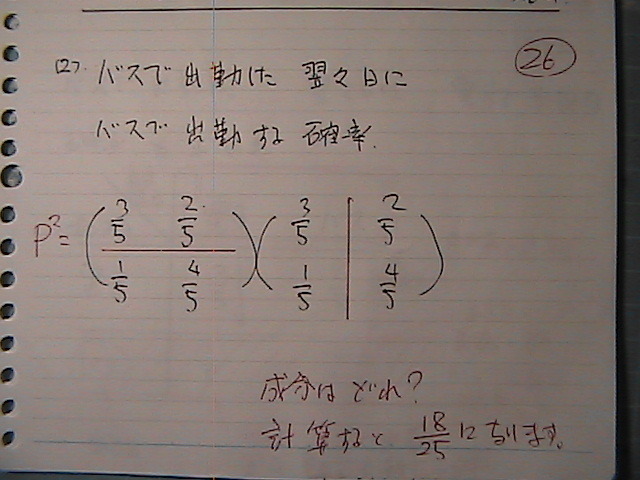 26
(2). バスで出勤した 翌々日に
バスで出勤する確率.
P²= (3/5 2/5) (3/5 2/5)
(1/5 4/5) (1/5 4/5)
成分はどれ?
計算すると 18/25 になります。